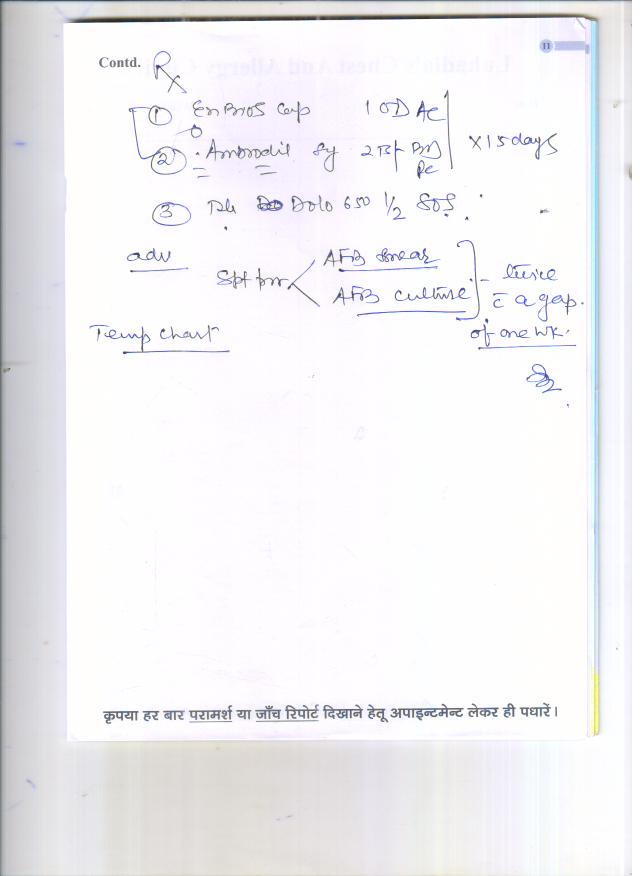 11
Contd. Rx
① EnBros Cap 1 OD AC
② Ambrodil Sy 2 TSF BD PC × 15 days
③ Tab Dolo 650 1/2 SOS
adv
Spt for AFB smear
AFB culture - twice c̄ a gap of one wk.
Temp Chart
कृपया हर बार परामर्श या जाँच रिपोर्ट दिखाने हेतू अपाइन्टमेन्ट लेकर ही पधारें।